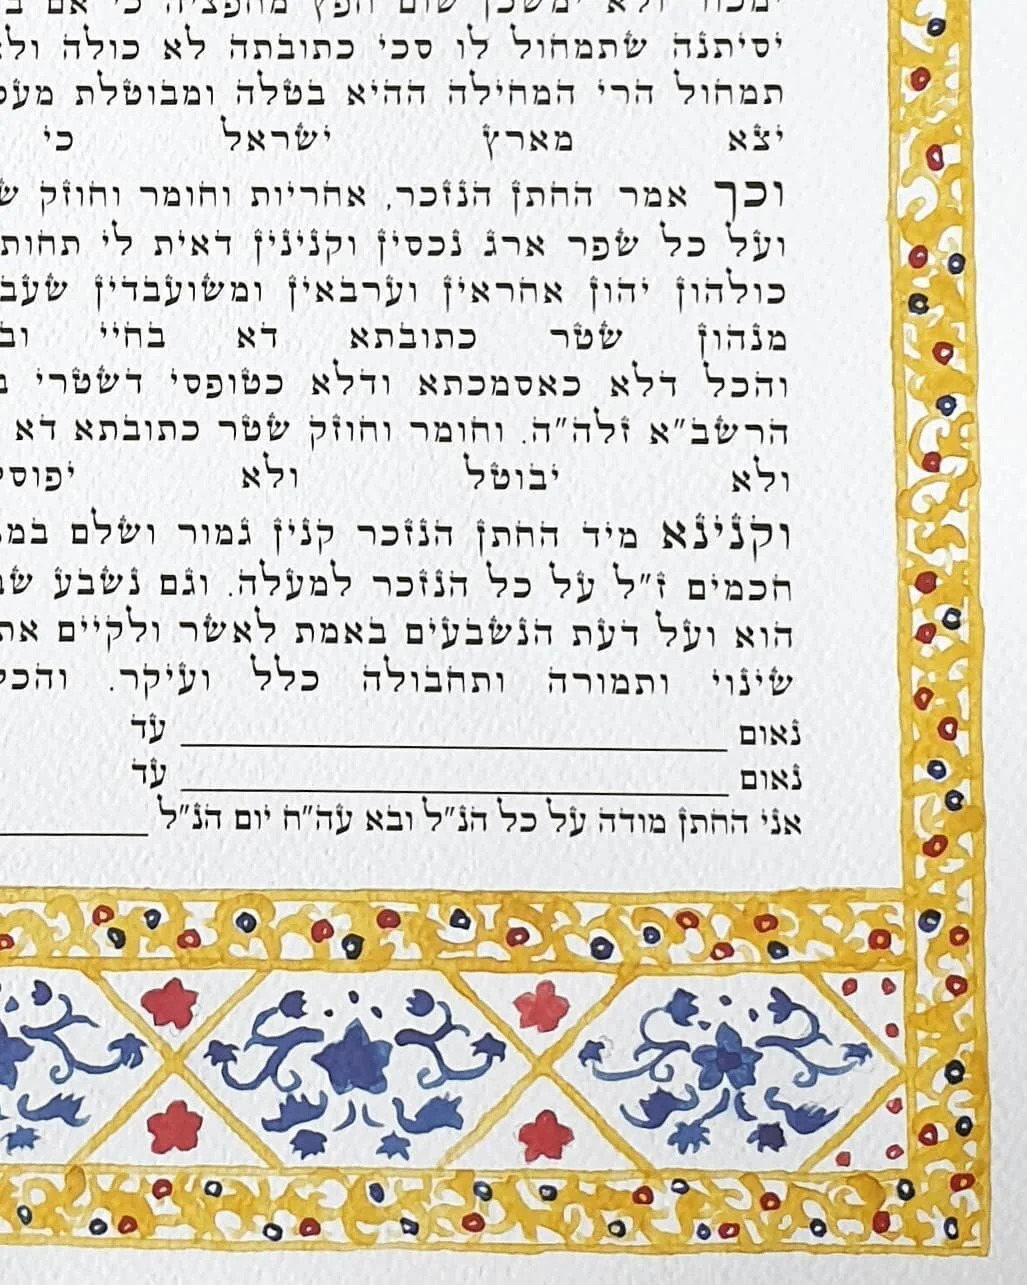 ימכור ולא ימשכן שום חפץ מחפציה כי אם
יסיתנה שתמחול לו סכי כתובתה לא כולה ולא
תמחול הרי המחילה ההיא בטלה ומבוטלת
יצא מארץ ישראל כי
וכך אמר החתן הנזכר, אחריות וחומר וחוזק
ועל כל שפר ארג נכסין וקנינין דאית לי תחות
כולהון יהון אחראין וערבאין ומשועבדין שעב
מנהון שטר כתובתא דא בחיי
והכל דלא כאסמכתא ודלא כטופסי דשטרי
הרשב"א זלה"ה. וחומר וחוזק שטר כתובתא דא
ולא יבוטל ולא יפוס
וקנינא מיד החתן הנזכר קנין גמור ושלם
חכמים ז"ל על כל הנזכר למעלה. וגם נשבע
הוא ועל דעת הנשבעים באמת לאשר ולקיים את
שינוי ותמורה ותחבולה כלל ועיקר. והכל
נאום ____________ עד
נאום ____________ עד
אני החתן מודה על כל הנ"ל ובא עה"ח יום הנ"ל ______